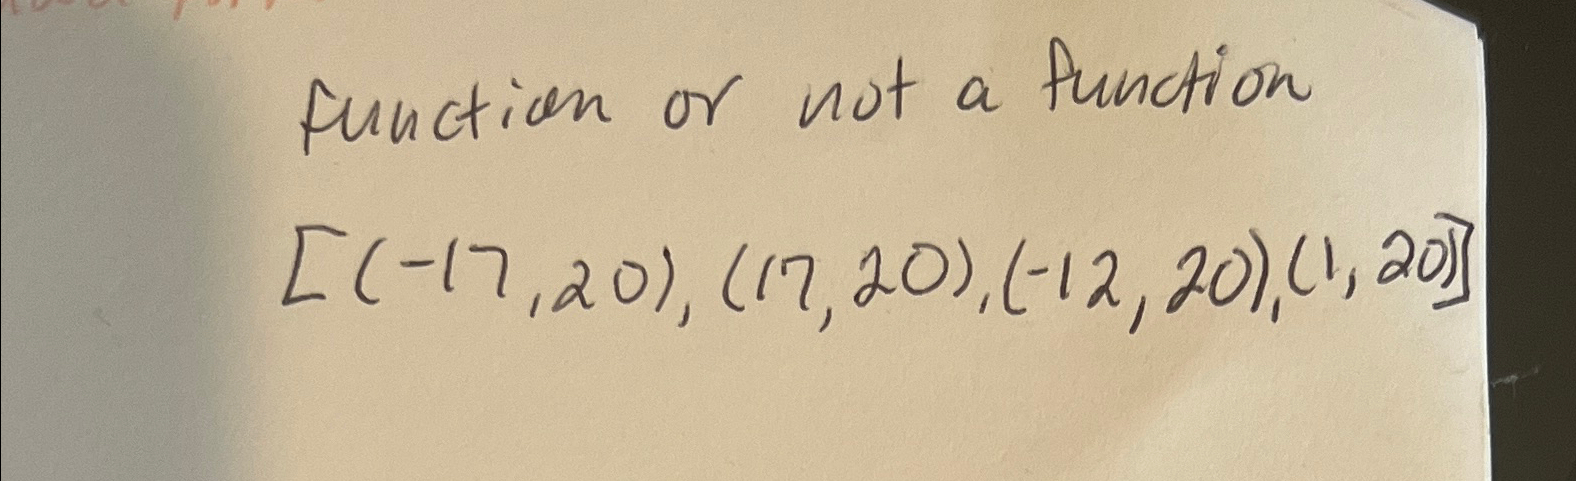 function or not a function
[(-17,20), (17,20), (-12,20), (1,20)]